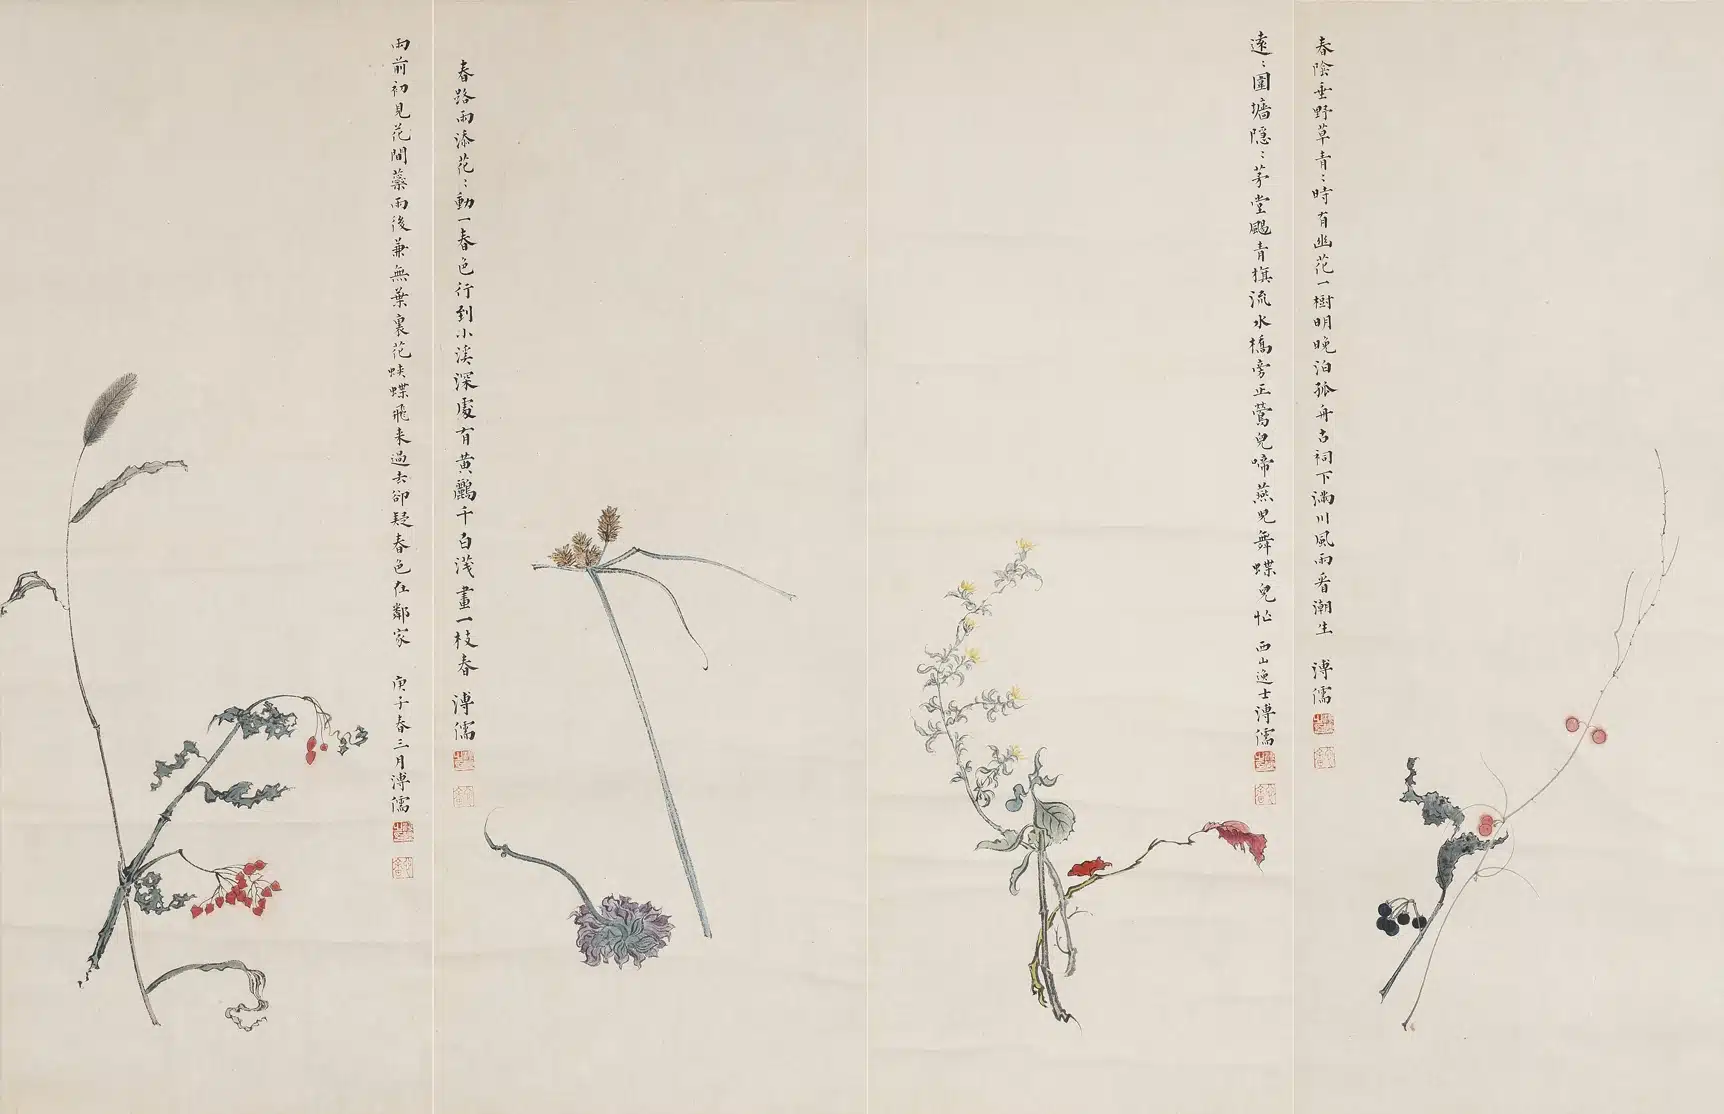 春陰垂野草青〻時有幽花一樹明晚泊孤舟古祠下滿川風雨看潮生 溥儒
遠〻圍墻隱〻茅堂颺青旗流水橋旁正鶯兒啼燕兒舞蝶兒忙 西山逸士溥儒
春路雨添花〻動一春色行到小溪深處有黃鸝千百淺畫一枝春 溥儒
雨前初見花間蘂雨後兼無葉裏花蛺蝶飛來過去卻疑春色在鄰家 庚子春三月溥儒